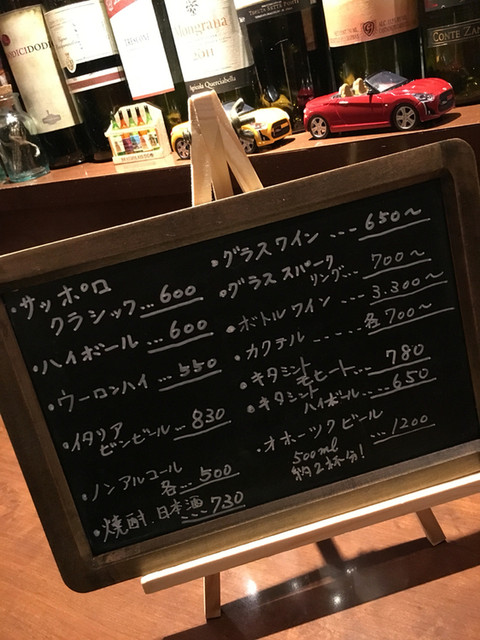 DICIDODI
Mongrana
2011
Agricola Querciabella
CONTE ZAN
・サッポロ
クラシック…600
・ハイボール…600
・ウーロンハイ…550
・イタリア
ビンビール…830
・ノンアルコール
各…500
・焼酎.日本酒…730
・グラスワイン…650〜
・グラススパーク
リング…700〜
・ボトルワイン…3.300〜
・カクテル……各700〜
・キタミント
モヒート…780
・キタミント
ハイボール…650
・オホーツクビール
500ml …1200
約2杯分!